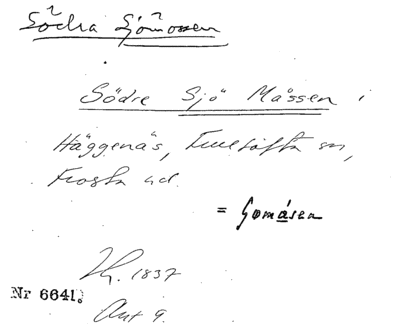 Södra Sjömossen
Södre Sjö Måssen i
Häggenäs, Fulltofta sn,
Frosta hd.
= Gomåsen
1837
Nr 6641.
Akt 9.